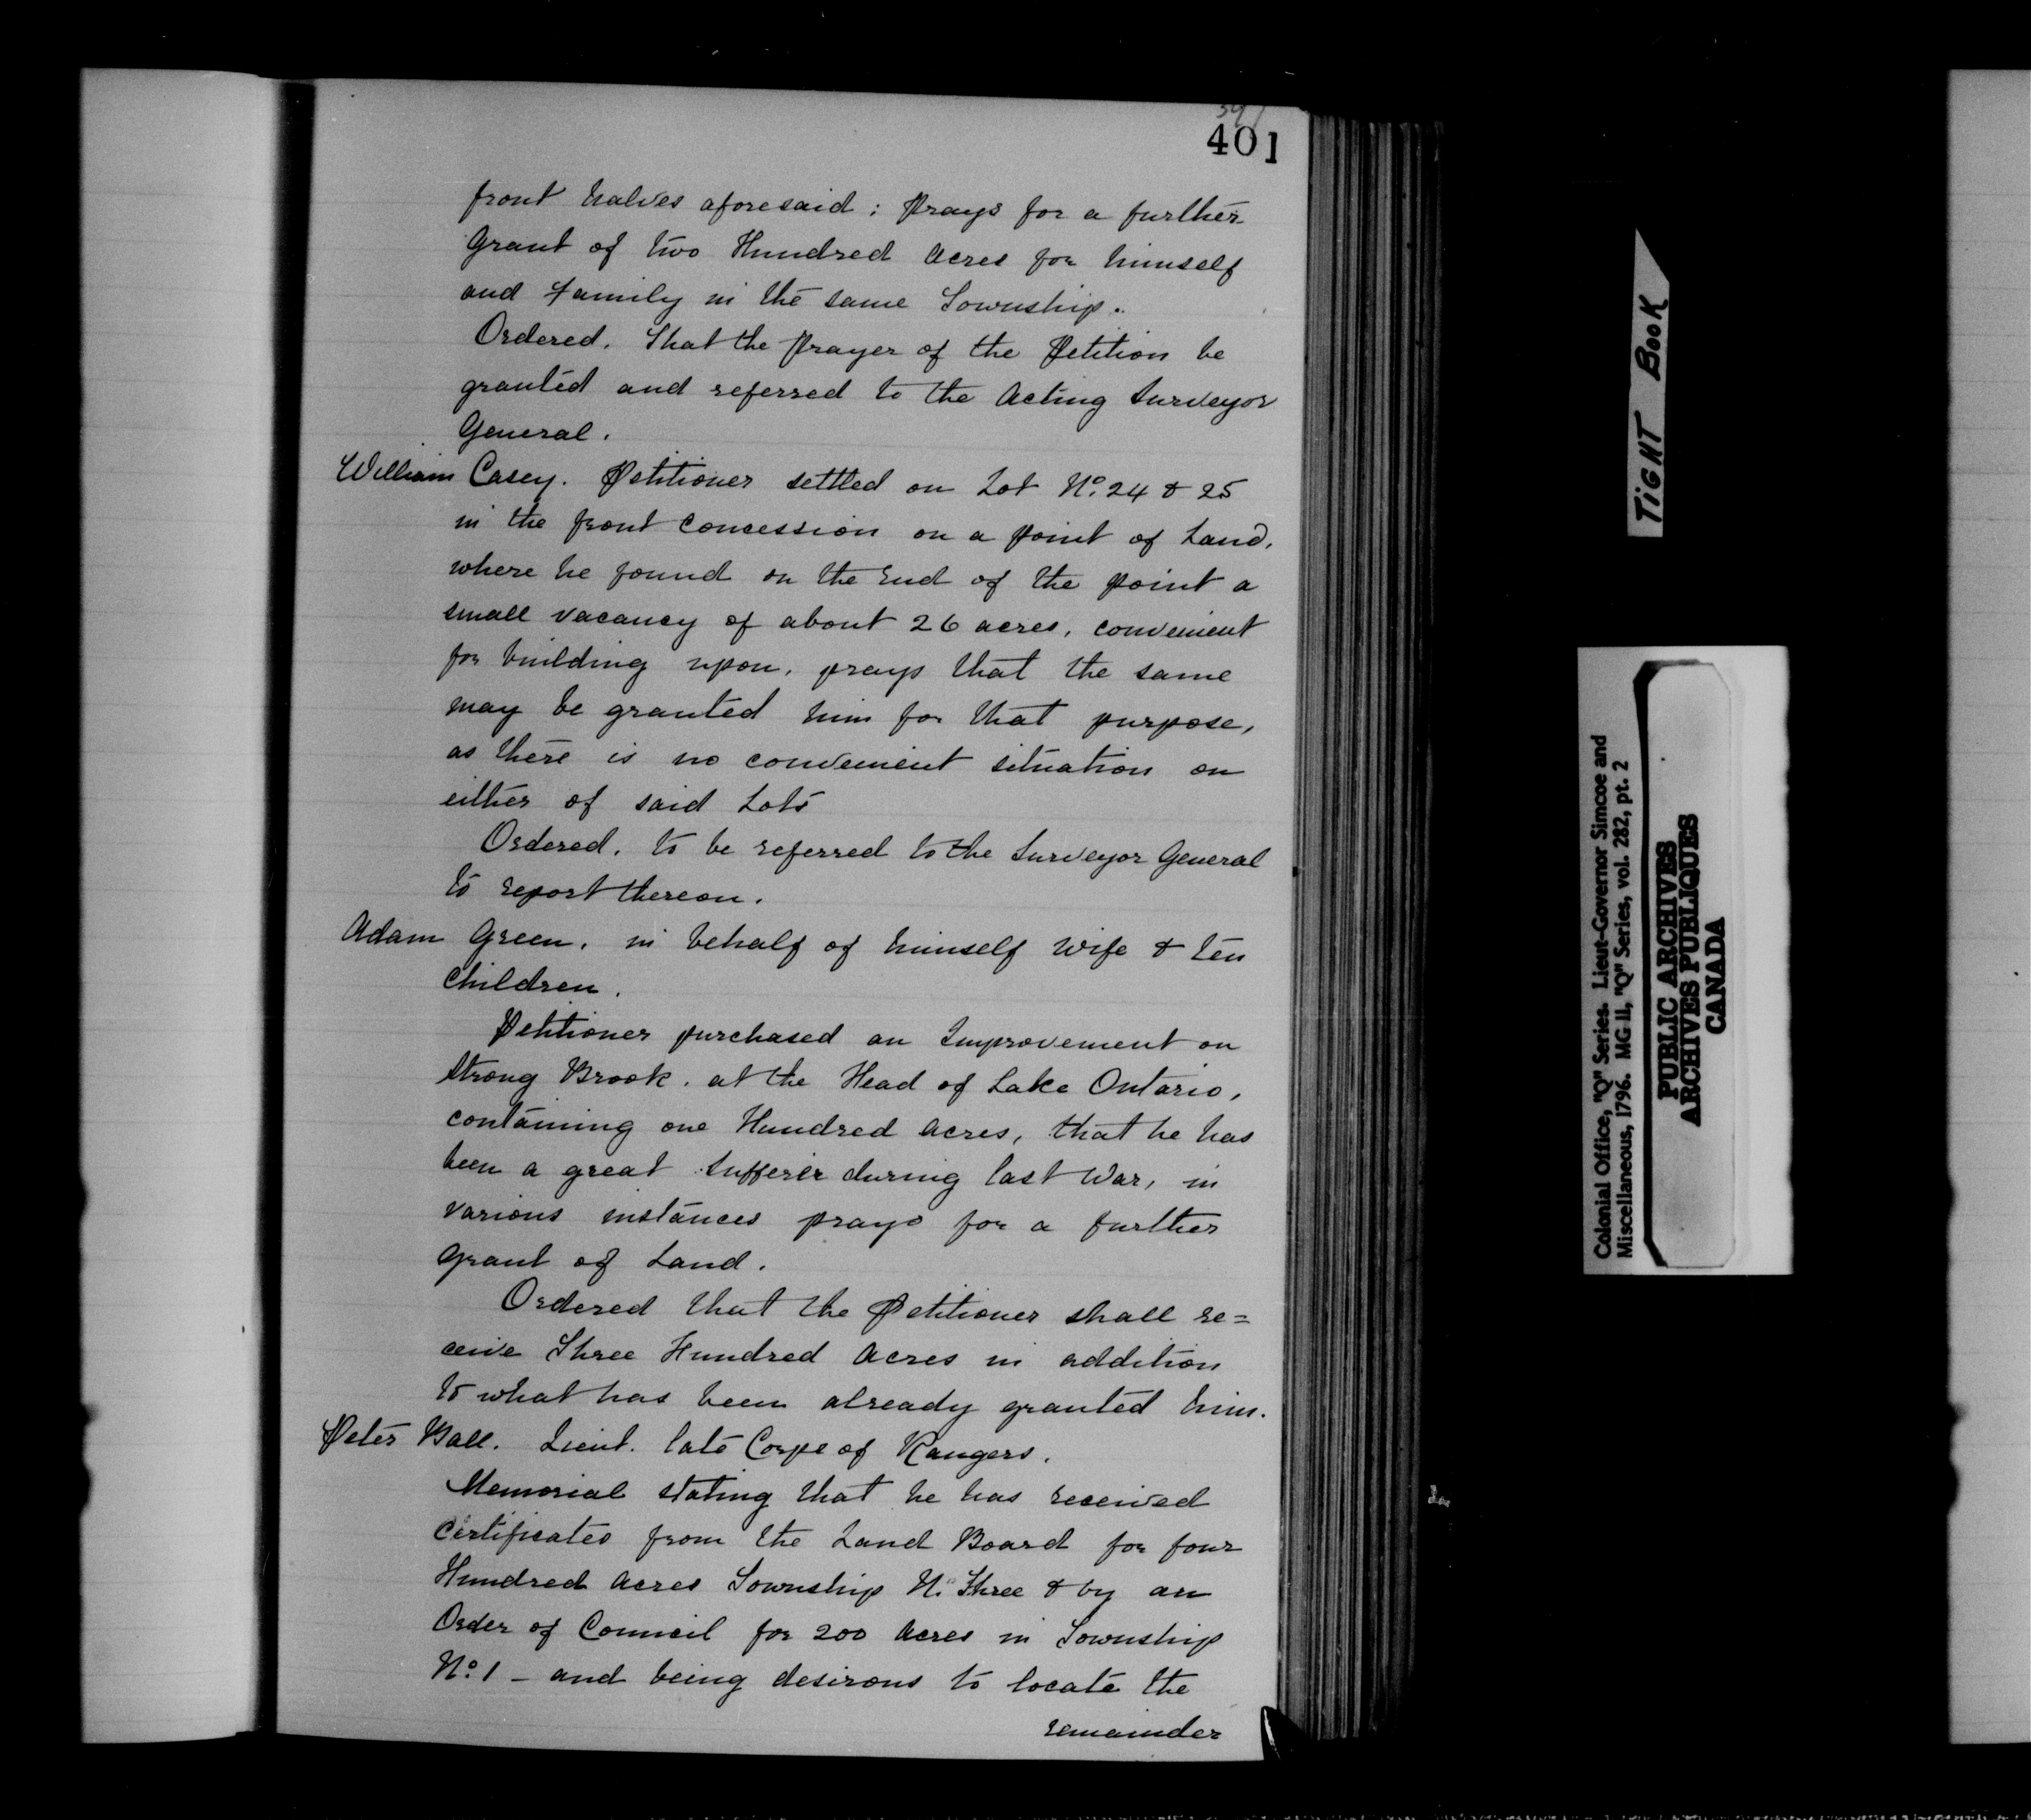 401
front halves aforesaid; prays for a further
Grant of two Hundred Acres for himself
and family in the same Township.
Ordered. That the prayer of the Petition be
granted and referred to the Acting Surveyor
General.
William Casey. Petitioner settled on Lot No. 24 & 25
in the front Concession on a point of Land,
where he found on the End of the point a
small vacancy of about 26 acres, convenient
for building upon, prays that the same
may be granted him for that purpose,
as there is no convenient situation on
either of said Lots
Ordered, to be referred to the Surveyor General
to report thereon.
Adam Green, in behalf of himself wife & ten
Children.
Petitioner purchased an Improvement on
Strong Brook, at the Head of Lake Ontario,
containing one Hundred Acres, that he has
been a great Sufferer during last War, in
various instances prays for a further
Grant of Land.
Ordered that the Petitioner shall re=
ceive Three Hundred Acres in addition
to what has been already granted him.
Peter Ball. Lieut. late Corps of Rangers.
Memorial stating that he has received
Certificates from the Land Board for four
Hundred Acres Township No. Three & by an
Order of Council for 200 Acres in Township
No. 1 – and being desirous to locate the
remainder
TIGHT BOOK
Colonial Office, "Q" Series. Lieut-Governor Simcoe and
Miscellaneous, 1796. MG 11, "Q" Series, vol. 282, pt. 2
PUBLIC ARCHIVES
ARCHIVES PUBLIQUES
CANADA